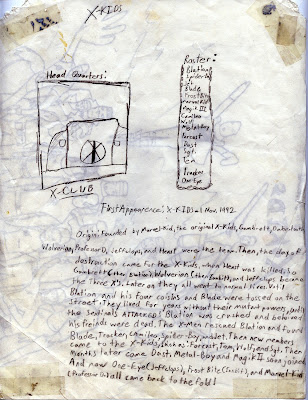 X-KIDS
Head Quarters:
X-CLUB
Roster:
Blation
Spiderboy
Jet
Blade
Frost Bite
Marvel Kid
Magik III
Camileo
Wolf
Metal-Boy
Forcast
Dust
Sgt.
Tem
Tracker
One Eye
First Appearence: X-KIDS #1 Nov. 1992
Origin: Founded by Marvel-Kid, the original X-Kids, Gambrelt,
Wolverian, Professor O, Jeffclops, and Heast were the team. Then, the day of
destruction came for the X-Kids, when Heast was killed, so
Gambrelt Wolverian and Jeffclops became
the Three X's. Later on they all went to normal lives. But,
Blation and his four cosins and Blade were tossed on the
street. They lived for years without their mutant powers, until
the Sentinals ATTACKED! Blation was crushed and beleived
his freinds were dead. The X-MEN rescued Blation and found
Blade, Tracker, Camileo, Spider-Boy, and Jet. Then new members
came to the X-Kids, such as: Forcast, Tem, Wolf, and Sgt. Then
Months later came Dust, Metal-Boy and Magik II soon joined
And now One-Eye (Jeffclops), Frost Bite and Marvel-Kid
(Professor O) all came back to the fold!